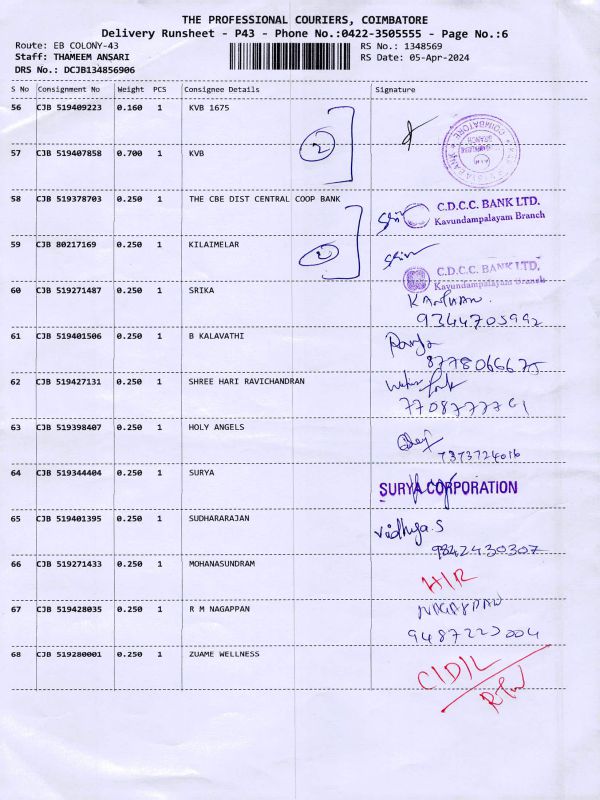 THE PROFESSIONAL COURIERS, COIMBATORE
Delivery Runsheet - P43 - Phone No.:0422-3505555 - Page No.:6
Route: EB COLONY-43 RS No.: 1348569
Staff: THAMEEM ANSARI RS Date: 05-Apr-2024
DRS No.: DCJB134856906
S No Consignment No Weight PCS Consignee Details Signature
56 CJB 519409223 0.160 1 KVB 1675
2
COIMBATORE
57 CJB 519407858 0.700 1 KVB
58 CJB 519378703 0.250 1 THE CBE DIST CENTRAL COOP BANK
C.D.C.C. BANK LTD.
Kavundampalayam Branch
59 CJB 80217169 0.250 1 KILAIMELAR
C.D.C.C. BANK LTD.
Kavundampalayam Branch
60 CJB 519271487 0.250 1 SRIKA
9344705992
61 CJB 519401506 0.250 1 B KALAVATHI
8778066675
62 CJB 519427131 0.250 1 SHREE HARI RAVICHANDRAN
63 CJB 519398407 0.250 1 HOLY ANGELS
7373724016
64 CJB 519344404 0.250 1 SURYA
SURYA CORPORATION
65 CJB 519401395 0.250 1 SUDHARARAJAN
Vidhya.S
9842430307
66 CJB 519271433 0.250 1 MOHANASUNDRAM
H/R
67 CJB 519428035 0.250 1 R M NAGAPPAN
NAGAPPAN
9487223004
68 CJB 519280001 0.250 1 ZUAME WELLNESS